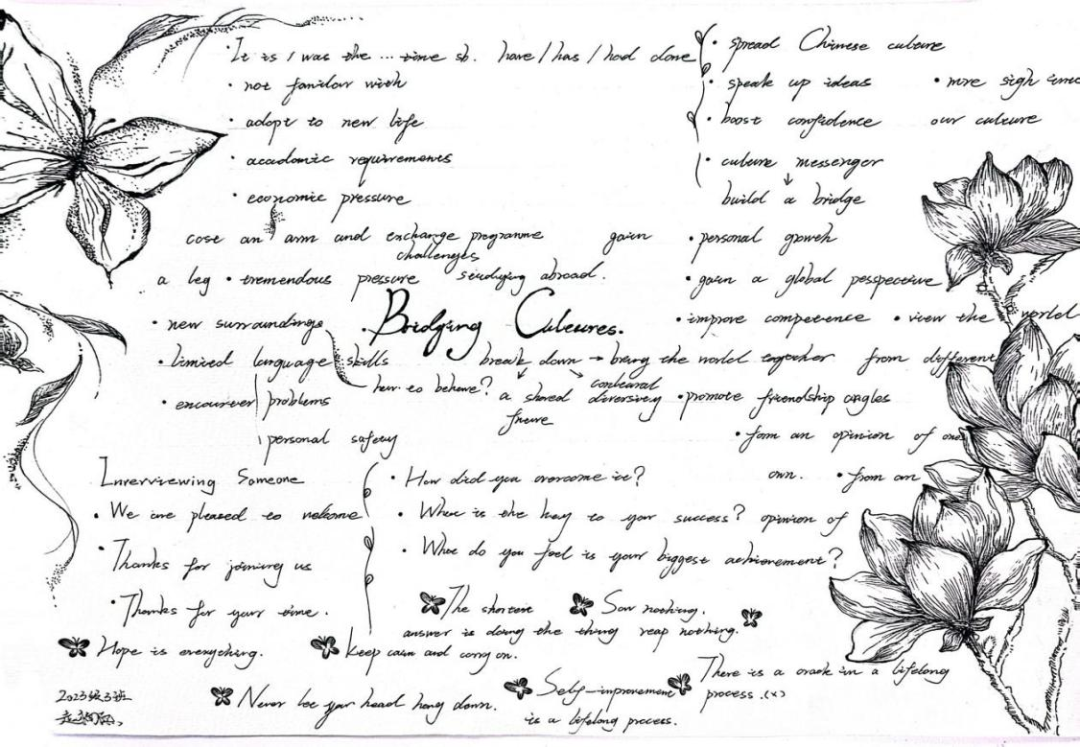 · It is / was the ... time sb. have / has / had done
· not familiar with
· adapt to new life
· academic requirements
· economic pressure
cost an arm and a leg
exchange programme
challenges
· tremendous pressure
studying abroad.
· new surroundings
how to behave?
· limited language skills
· encounter problems
personal safety
· Bridging Cultures.
break down → bring the world together
a shared future
cultural diversity
· spread Chinese culture
· speak up ideas
· boost confidence
· culture messenger
build a bridge
our culture
gain
· personal growth
· gain a global perspective
· improve competence
· view the world from different angles
· promote friendship
· form an opinion of one's own.
· from an opinion of
Interviewing Someone
· We are pleased to welcome
· Thanks for joining us
· Thanks for your time.
· How did you overcome it?
· What is the key to your success?
· What do you feel is your biggest achievement?
The shortest answer is doing the thing
Sow nothing. reap nothing.
Hope is everything.
Keep calm and carry on.
Never let your head hang down.
Self-improvement is a lifelong process.
There is a crack in a lifelong process. (x)
2023级3班